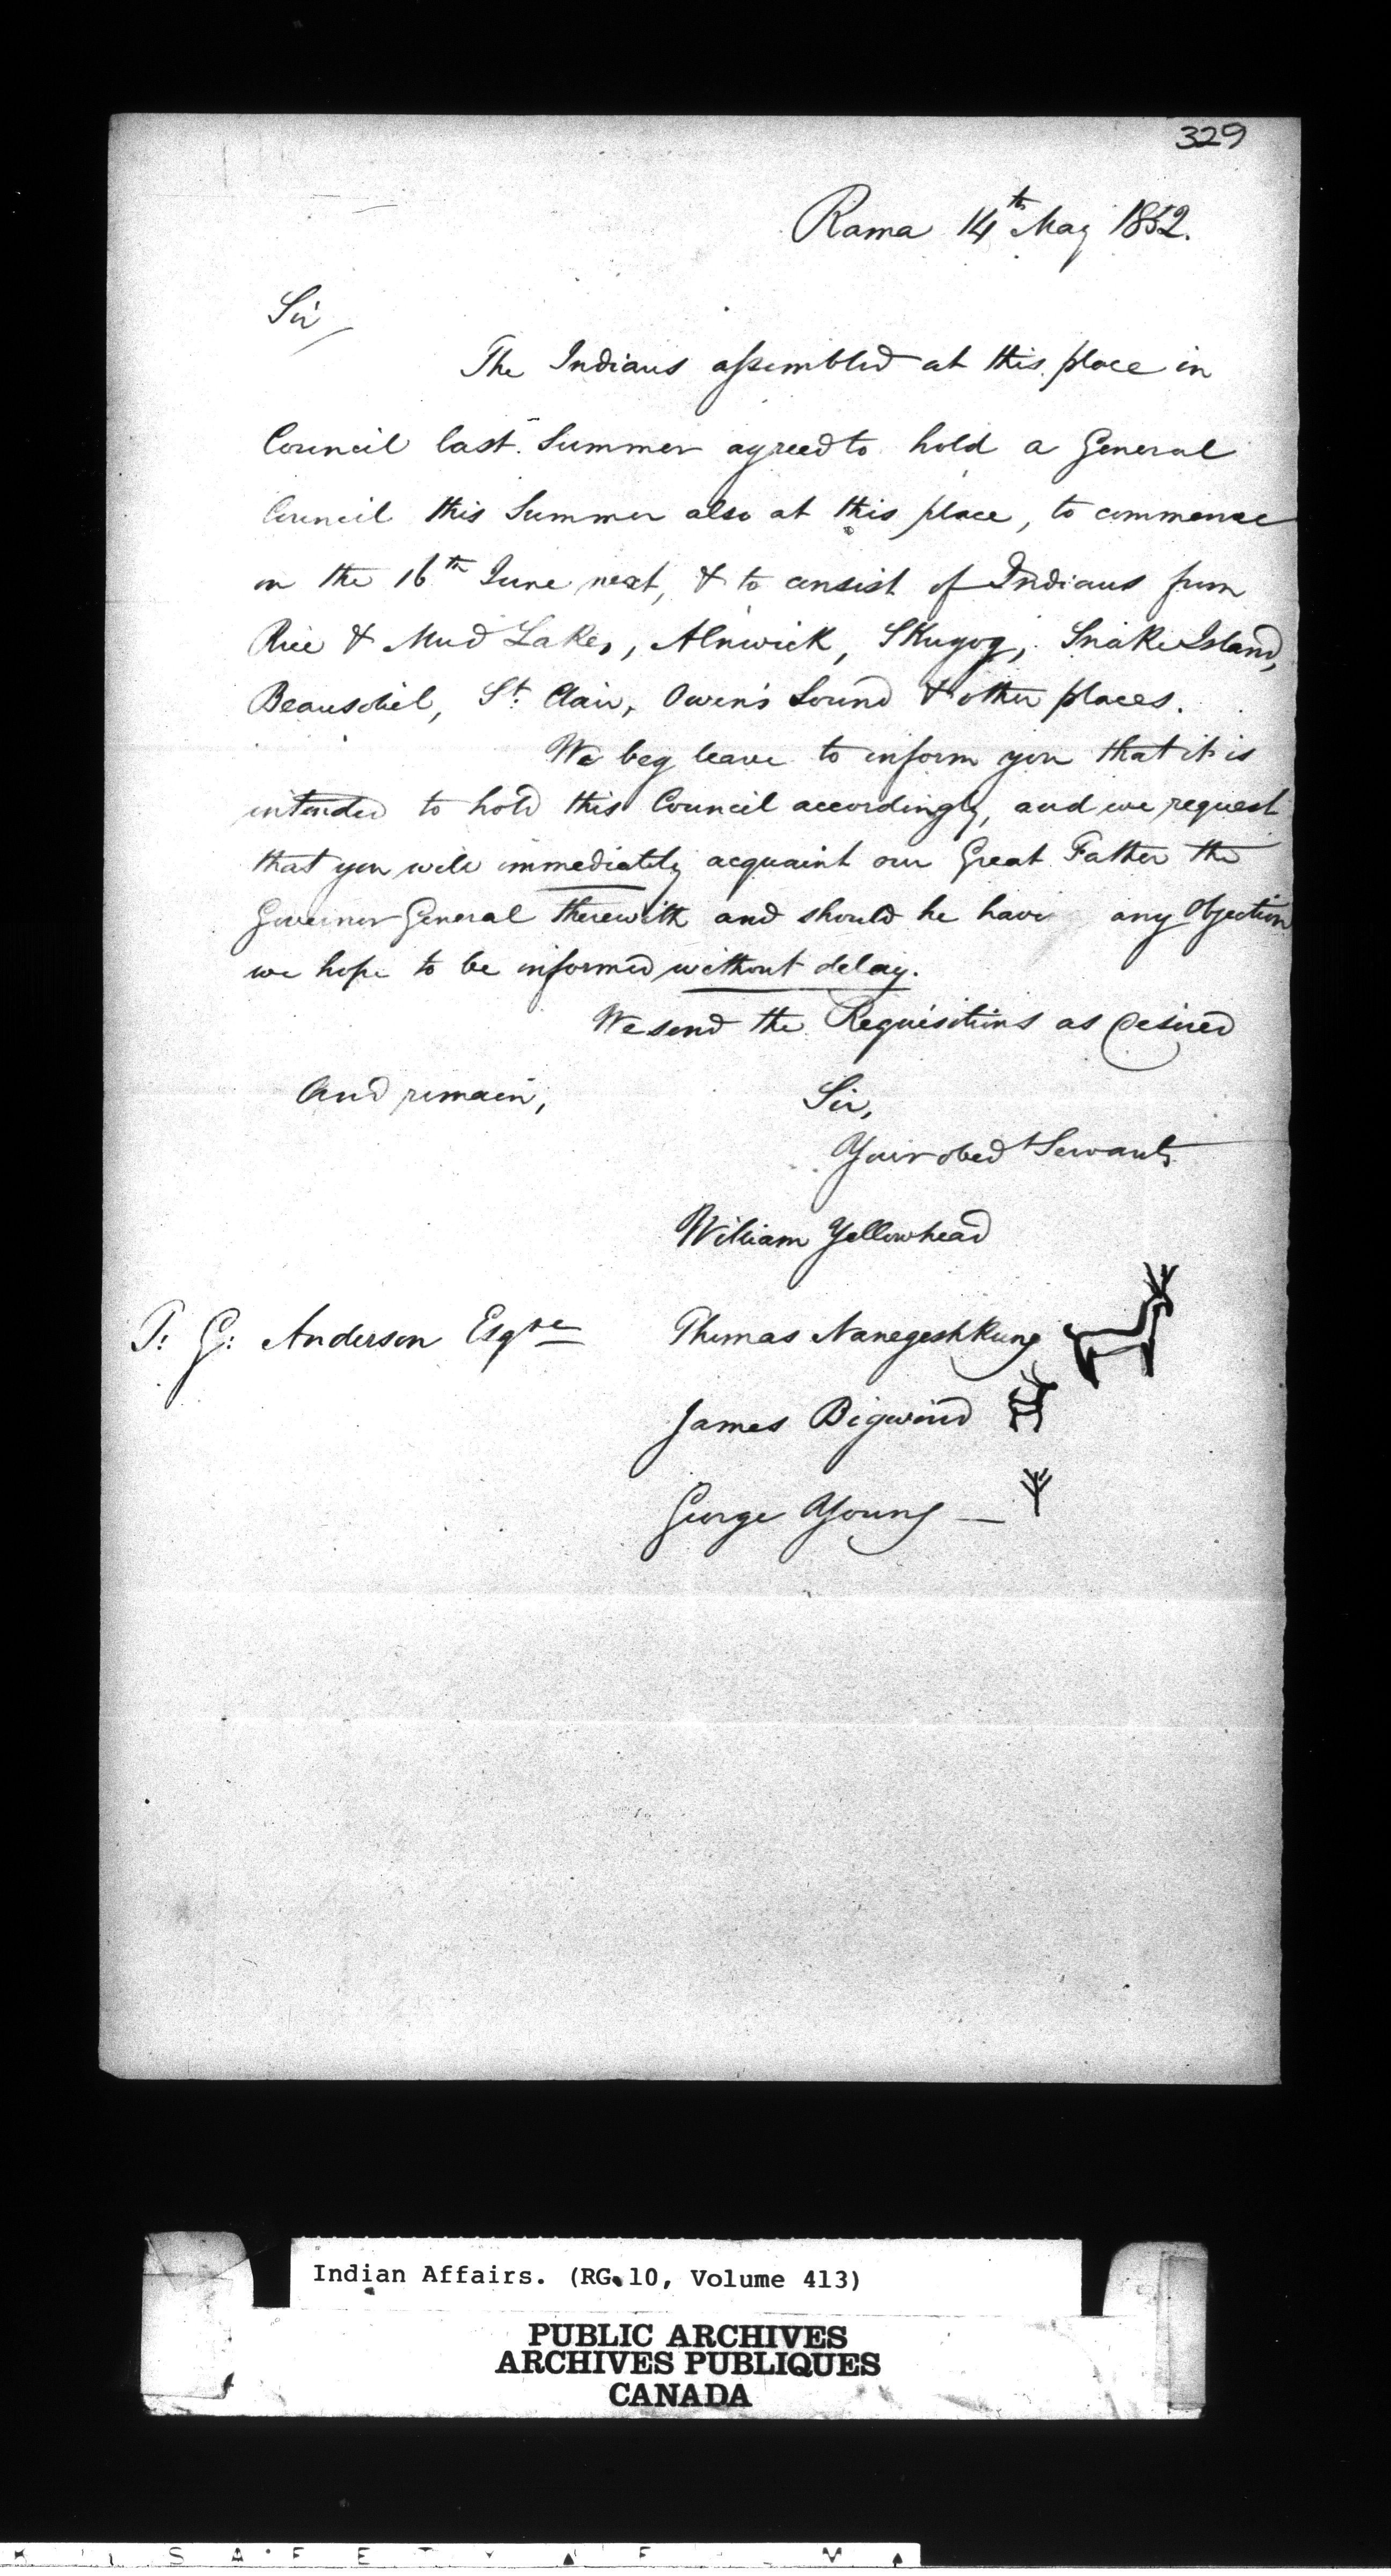 329
Rama 14th May 1852.
Sir
The Indians assembled at this place in
Council last Summer agreed to hold a General
Council this Summer also at this place, to commence
on the 16th June next, & to consist of Indians from
Rice & Mud Lakes, Alnwick, Skugog, Snake Island,
Beausoliel, St. Clair, Owen's Sound & other places.
We beg leave to inform you that it is
intended to hold this Council accordingly, and we request
that you will immediately acquaint our Great Father the
Governor General therewith and should he have any Objection
we hope to be informed without delay.
We send the Requisitions as desired
And remain,
Sir,
Your obedt Servants
William Yellowhead
T: G: Anderson Esqre
Thomas Nanegeshkung
James Bigwind
George Young —
Indian Affairs. (RG.10, Volume 413)
PUBLIC ARCHIVES
ARCHIVES PUBLIQUES
CANADA
S A F E T Y